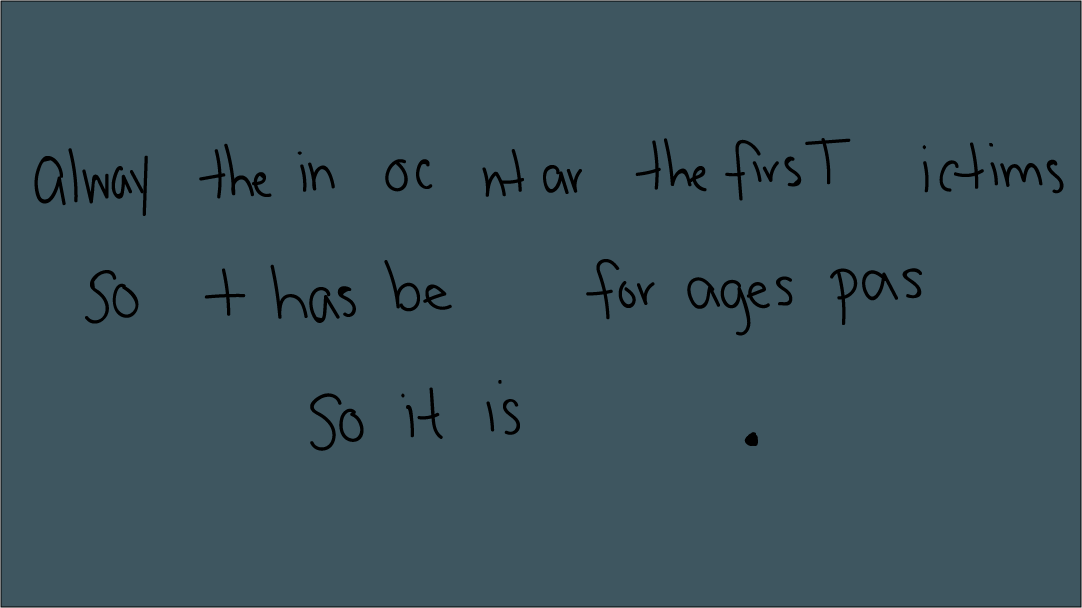 alway the in oc nt ar the firsT ictims
So t has be for ages pas
So it is .